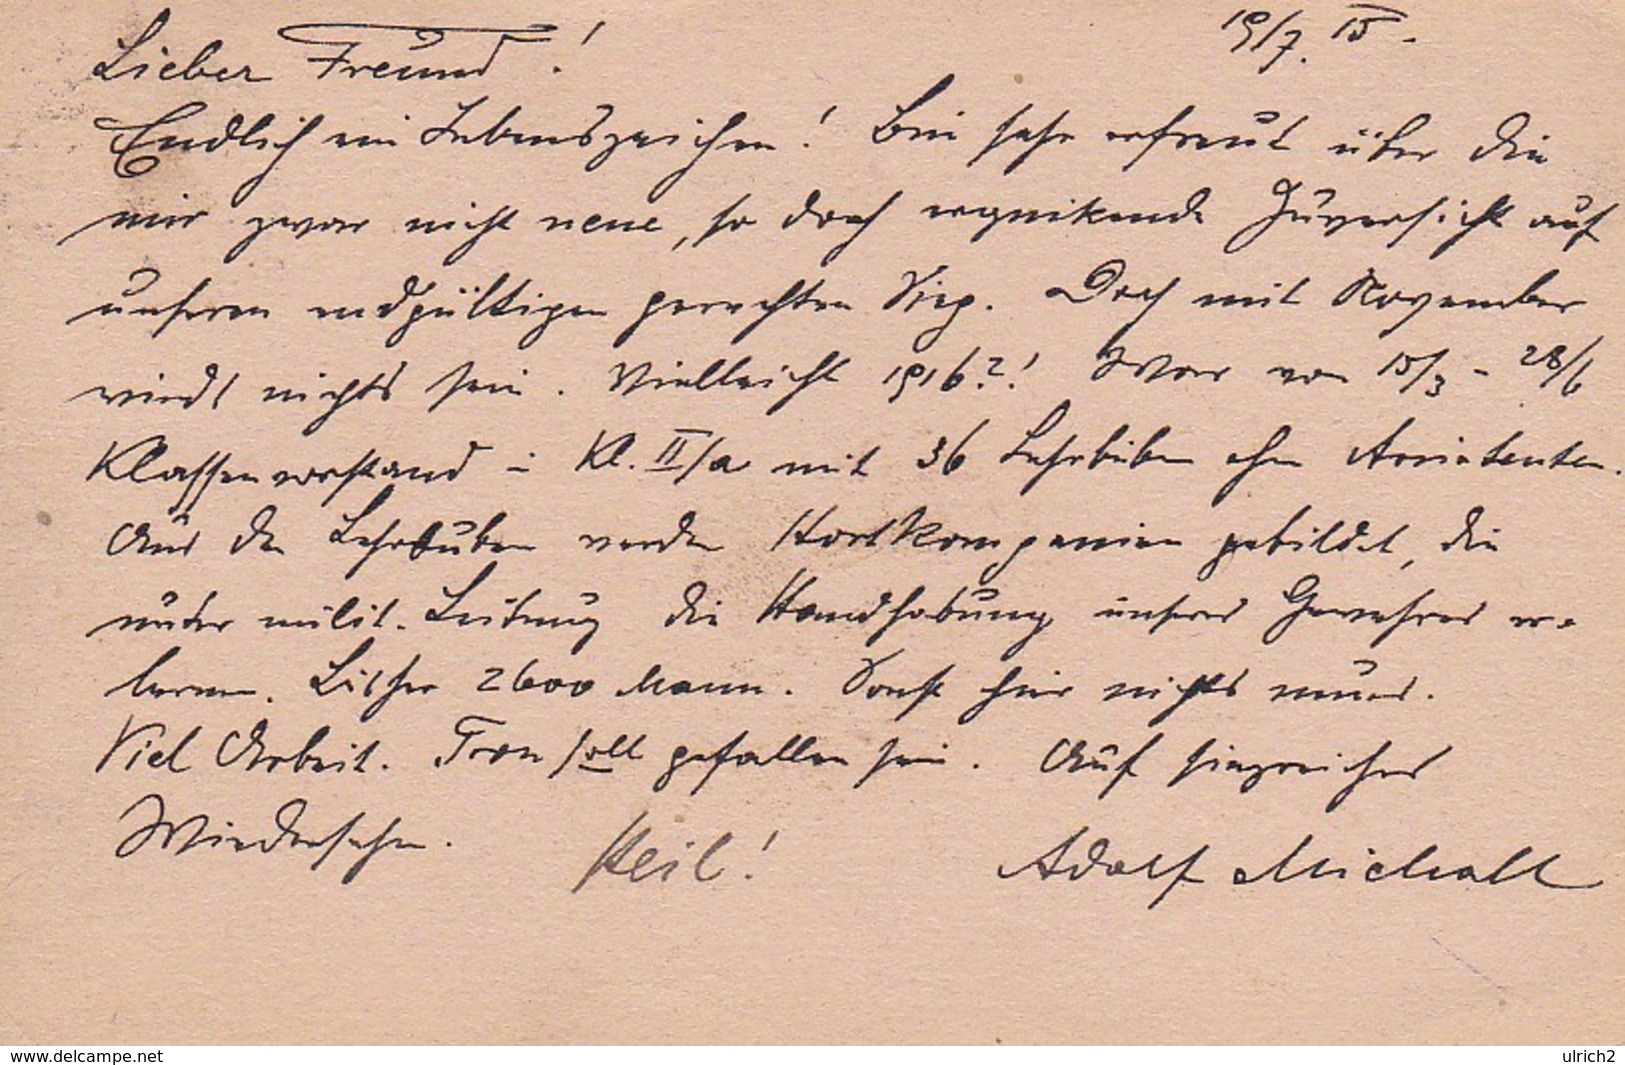 19/7. 15.
Lieber Freund!
Endlich ein Lebenszeichen! Bin sehr erfreut über die
mir zwar nicht neue, so doch erquickende Zuversicht auf
unseren endgültigen gerechten Sieg. Doch mit November
wirds nichts sein. Vielleicht 1916?! War von 15/3 - 28/6
Klassenvorstand i Kl. II/a mit 36 Lehrbuben ohne Assistenten.
Aus den Lehrbuben werden Hortkompanien gebildet, die
unter milit. Leitung die Handhabung unseres Gewehres er-
lernen. Bisher 2600 Mann. Sonst hier nichts neues.
Viel Arbeit. soll gefallen sein. Auf siegreiches
Wiedersehn. Heil! Adolf
www.delcampe.net
ulrich2